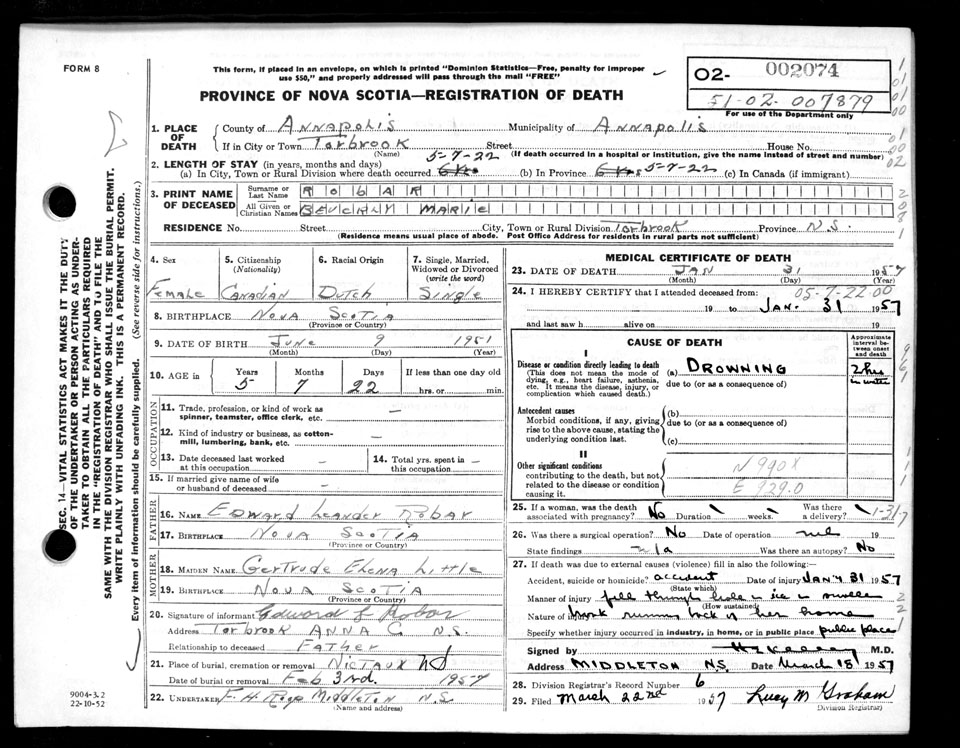 FORM 8
This form, if placed in an envelope, on which is printed "Dominion Statistics—Free, penalty for improper
use $50," and properly addressed will pass through the mail "FREE"
PROVINCE OF NOVA SCOTIA—REGISTRATION OF DEATH
02- 002074
51-02-007879
For use of the Department only
SEC. 14—VITAL STATISTICS ACT MAKES IT THE DUTY
OF THE UNDERTAKER OR PERSON ACTING AS UNDER-
TAKER TO OBTAIN ALL THE PARTICULARS REQUIRED
IN THE "REGISTRATION OF DEATH" AND TO FILE THE
SAME WITH THE DIVISION REGISTRAR WHO SHALL ISSUE THE BURIAL PERMIT.
WRITE PLAINLY WITH UNFADING INK. THIS IS A PERMANENT RECORD.
Every item of information should be carefully supplied. (See reverse side for instructions.)
1. PLACE OF DEATH
County of Annapolis Municipality of Annapolis
If in City or Town Torbrook Street House No.
(Name) (If death occurred in a hospital or institution, give the name instead of street and number)
2. LENGTH OF STAY (in years, months and days) 5-7-22
(a) In City, Town or Rural Division where death occurred (b) In Province 5-7-22 (c) In Canada (if immigrant)
3. PRINT NAME OF DECEASED
Surname or Last Name Robar
All Given or Christian Names Beverly Marie
RESIDENCE No. Street City, Town or Rural Division Torbrook Province N.S.
(Residence means usual place of abode. Post Office Address for residents in rural parts not sufficient)
4. Sex
Female
5. Citizenship (Nationality)
Canadian
6. Racial Origin
Dutch
7. Single, Married, Widowed or Divorced (write the word)
Single
8. BIRTHPLACE Nova Scotia
(Province or Country)
9. DATE OF BIRTH June 9 1951
(Month) (Day) (Year)
10. AGE in Years Months Days If less than one day old
5 7 22 hrs. or min.
OCCUPATION
11. Trade, profession, or kind of work as spinner, teamster, office clerk, etc. —
12. Kind of industry or business, as cotton-mill, lumbering, bank, etc. —
13. Date deceased last worked at this occupation —
14. Total yrs. spent in this occupation —
15. If married give name of wife or husband of deceased —
FATHER
16. NAME Edward Leander Robar
17. BIRTHPLACE Nova Scotia
(Province or Country)
MOTHER
18. MAIDEN NAME Gertrude Elena Little
19. BIRTHPLACE Nova Scotia
(Province or Country)
20. Signature of informant Edward L Robar
Address Torbrook Anna C. N.S.
Relationship to deceased Father
21. Place of burial, cremation or removal Nictaux NS
Date of burial or removal Feb 3rd. 1957
22. UNDERTAKER F. H. Middleton N.S.
(Name and address)
9004-3.2
22-10-52
MEDICAL CERTIFICATE OF DEATH
23. DATE OF DEATH Jan 31 1957
(Month) (Day) (Year)
24. I HEREBY CERTIFY that I attended deceased from: 05-7-22 00
19 to Jan. 31 1957
and last saw h alive on 19
CAUSE OF DEATH
Approximate interval between onset and death
I
Disease or condition directly leading to death
(This does not mean the mode of dying, e.g., heart failure, asthenia, etc. It means the disease, injury, or complication which caused death.)
(a) Drowning 2 hrs in water
due to (or as a consequence of)
Antecedent causes
Morbid conditions, if any, giving rise to the above cause, stating the underlying condition last.
(b)
due to (or as a consequence of)
(c)
II
Other significant conditions
contributing to the death, but not related to the disease or condition causing it.
N990X
E 929.0
25. If a woman, was the death associated with pregnancy? No Duration weeks. Was there a delivery?
26. Was there surgical operation? No Date of operation 19
State findings n/a Was there an autopsy? No
27. If death was due to external causes (violence) fill in also the following:
Accident, suicide or homicide? accident Date of injury Jany 31 1957
(State which)
Manner of injury fell through hole in ice in
(How sustained)
Nature of injury brook running back of her home
Specify whether injury occurred in industry, in home, or in public place public place
Signed by M.D.
Address Middleton N.S. Date March 18 1957
28. Division Registrar's Record Number 6
29. Filed March 22nd 1957 Lucy M Graham
Division Registrar